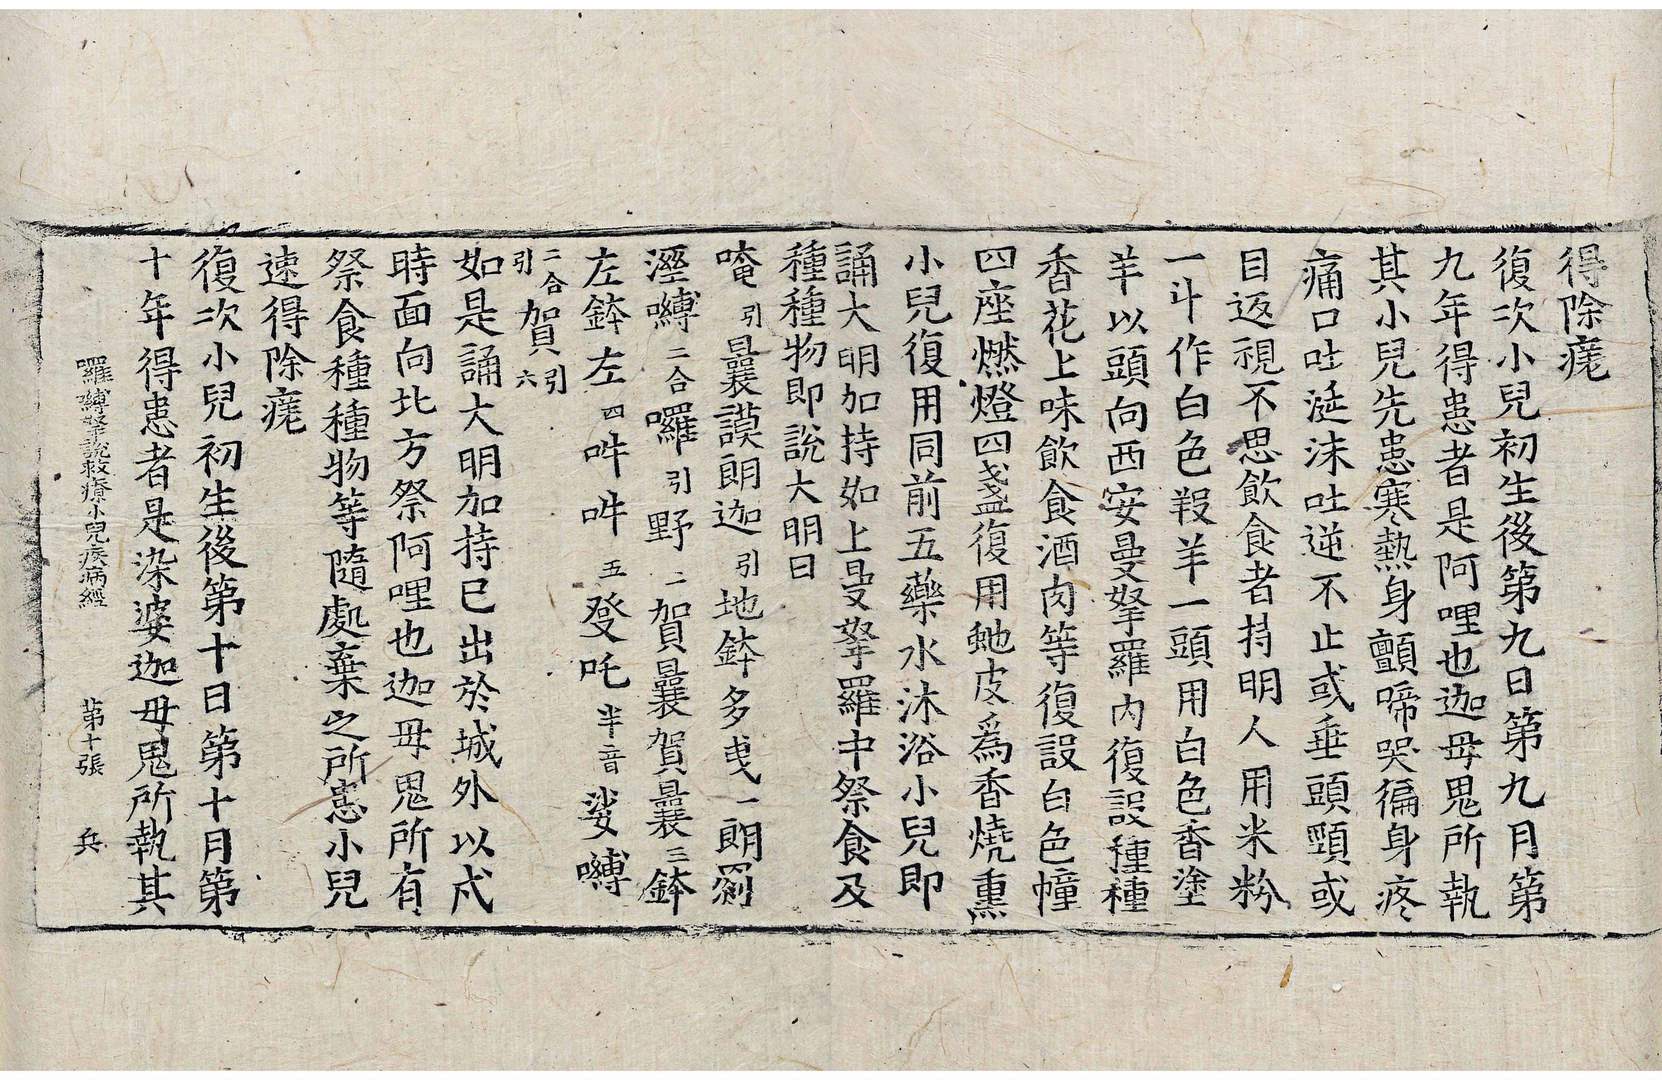 得除瘥
復次小兒初生後第九日第九月第
九年得患者是阿哩也迦毋鬼所執
其小兒先患寒熱身顫啼哭徧身疼
痛口吐涎沫吐逆不止或垂頭頸或
目返視不思飲食者持明人用米粉
一斗作白色羖羊一頭用白色香塗
羊以頭向西安曼拏羅內復設種種
香花上味飲食酒肉等復設白色幢
四座燃燈四盞復用虵皮爲香燒熏
小兒復用同前五藥水沐浴小兒即
誦大明加持如上曼拏羅中祭食及
種種物即說大明曰
唵引曩謨朗迦引地鉢多曵一朗
溼嚩二合囉引野二賀曩賀曩三鉢
左鉢左四吽吽五發吒半音娑嚩
二合引賀引六
如是誦大明加持已出於城外以戌
時面向北方祭阿哩也迦毋鬼所有
祭食種種物等隨處棄之所患小兒
速得除瘥
復次小兒初生後第十日第十月第
十年得患者是染婆迦毋鬼所執其
囉嚩拏說救療小兒疾病經 第十張 兵